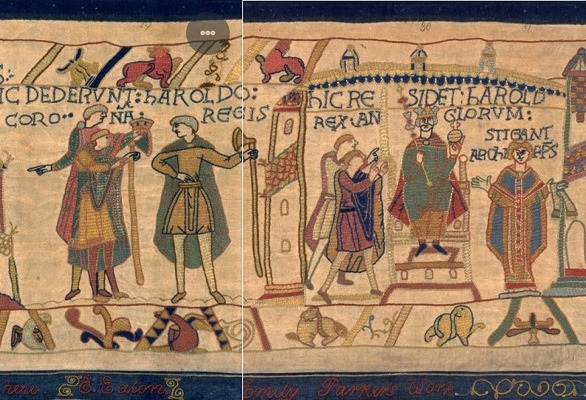 IC DEDERVNT: hAROLDO:
CORO·· NA: REGIS
hIC RE SIDET: hAROLD
REX: AN GLORVM:
STIGANT
ARChI EPS
here. S. Eaton.
Emily Parker's Work